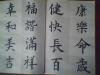 幸福
和諧
美滿
吉祥
健康
快樂
長命
百歲